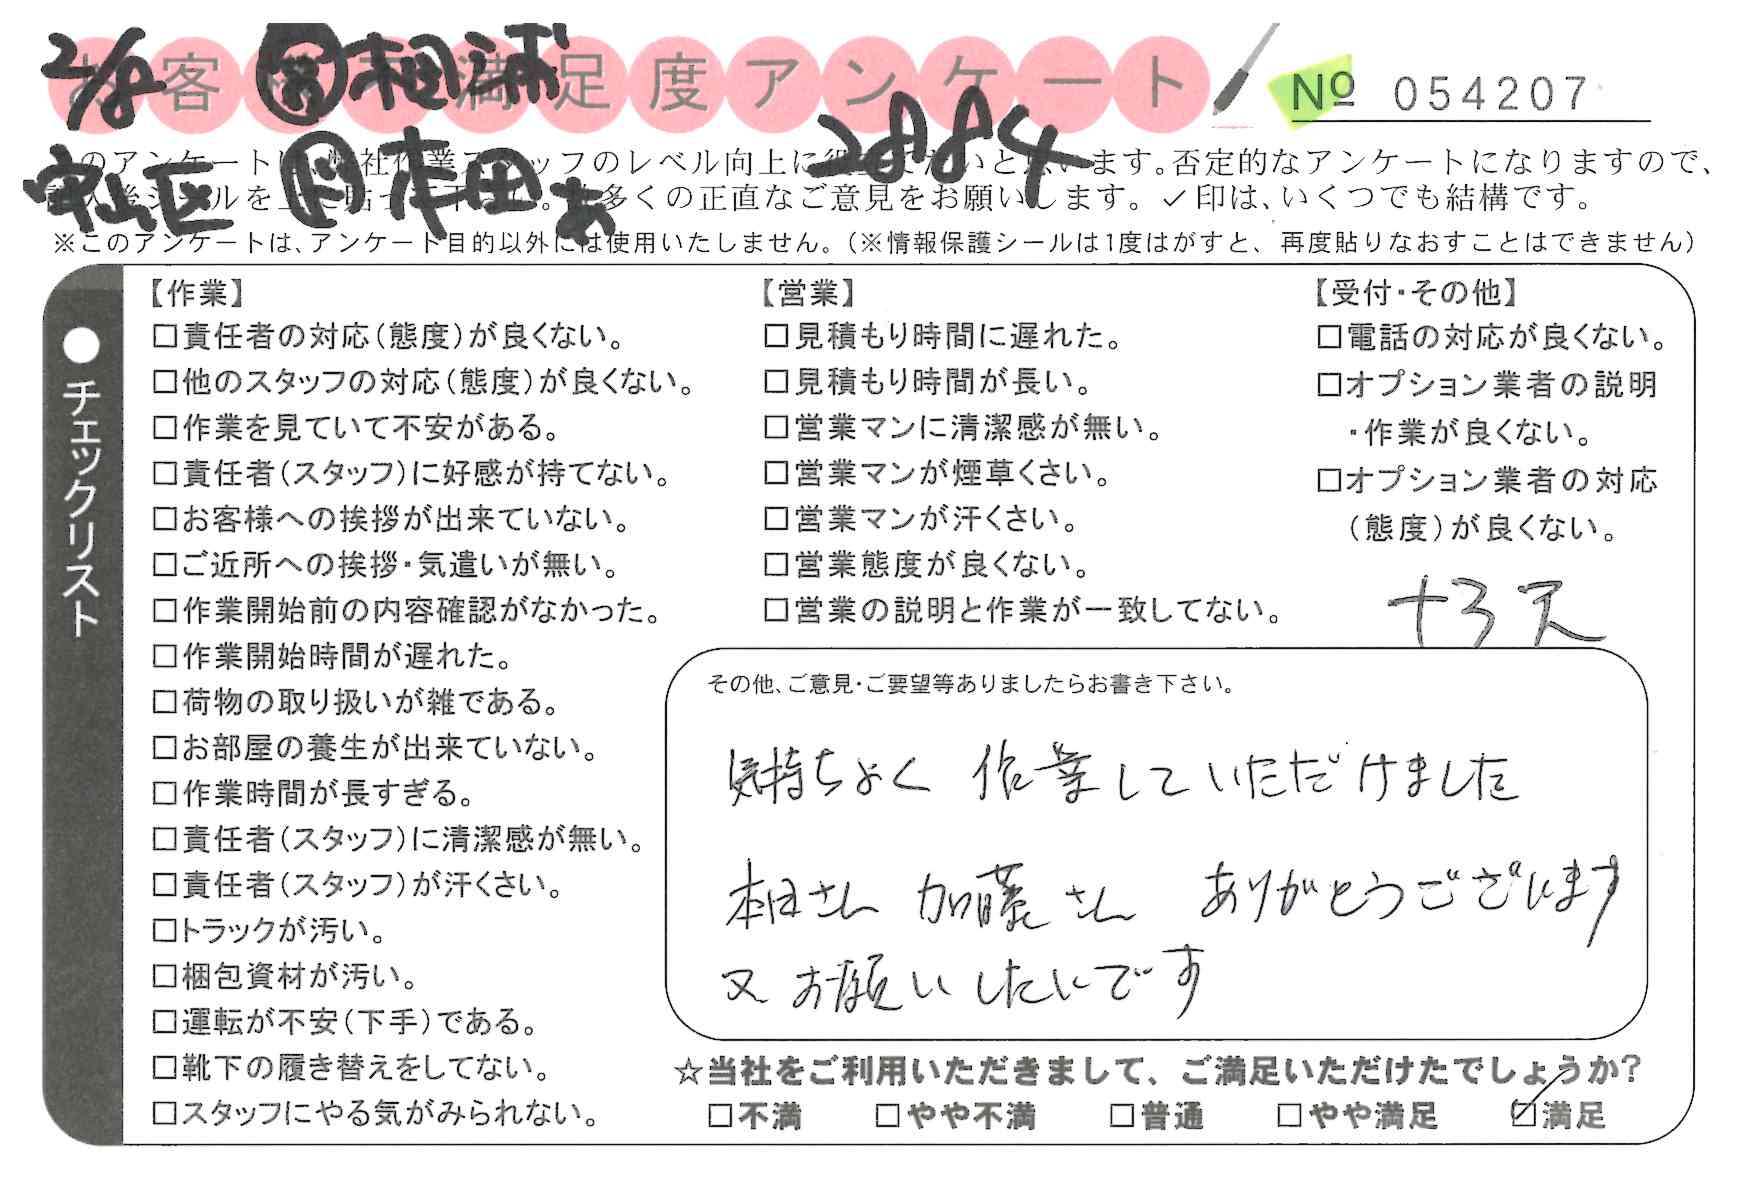 2/8
お客様不満足度アンケート
No 054207
2884
守山区 本田
このアンケートは、弊社作業スタッフのレベル向上に役立てたいと思います。否定的なアンケートになりますので、
記入後シールを上に貼って下さい。数多くの正直なご意見をお願いします。✓印は、いくつでも結構です。
※このアンケートは、アンケート目的以外には使用いたしません。(※情報保護シールは1度はがすと、再度貼りなおすことはできません)
●チェックリスト
【作業】
□責任者の対応(態度)が良くない。
□他のスタッフの対応(態度)が良くない。
□作業を見ていて不安がある。
□責任者(スタッフ)に好感が持てない。
□お客様への挨拶が出来ていない。
□ご近所への挨拶・気遣いが無い。
□作業開始前の内容確認がなかった。
□作業開始時間が遅れた。
□荷物の取り扱いが雑である。
□お部屋の養生が出来ていない。
□作業時間が長すぎる。
□責任者(スタッフ)に清潔感が無い。
□責任者(スタッフ)が汗くさい。
□トラックが汚い。
□梱包資材が汚い。
□運転が不安(下手)である。
□靴下の履き替えをしてない。
□スタッフにやる気がみられない。
【営業】
□見積もり時間に遅れた。
□見積もり時間が長い。
□営業マンに清潔感が無い。
□営業マンが煙草くさい。
□営業マンが汗くさい。
□営業態度が良くない。
□営業の説明と作業が一致してない。
【受付・その他】
□電話の対応が良くない。
□オプション業者の説明
・作業が良くない。
□オプション業者の対応
(態度)が良くない。
その他、ご意見・ご要望等ありましたらお書き下さい。
気持ちよく 作業していただけました
本田さん 加藤さん ありがとうございます
又お願いしたいです
☆当社をご利用いただきまして、ご満足いただけたでしょうか?
□不満 □やや不満 □普通 □やや満足 ☑満足